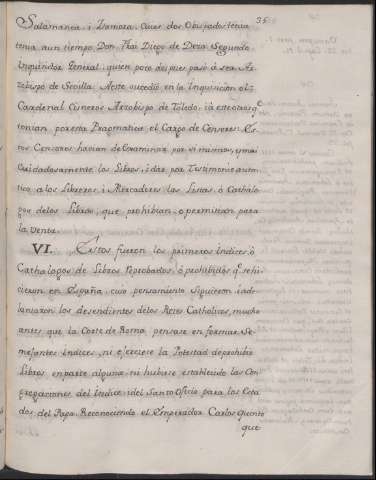 35
Salamanca, i Zamora, cuios dos Obispados tenia
tenia aun tiempo, Don Frai Diego de Deza Segundo
Inquisidor General, quien poco despues pasó á ser Ar-
zobispo de Sevilla. Aeste sucedió en la Inquisicion el
Cardenal Cisneros Arzobispo de Toledo, i á este
tonian por esta Pragmatica el Cargo de Censores. Es-
tos Censores havian de Examinar por si mismos, y mui
Cuidadosamente los Libros, i dar por Testimonio auten-
tico a los Libreros, i Mercaderes las Listas, ó Cathálo-
gos de los Libros, que prohibian, o permitian para
la Venta.
VI. Estos fueron los primeros Indices, ó
Cathalogos de Libros reprobados, ó prohibidos qe. se hi-
cieron en España, cuio pensamiento siguieron, i ade-
lantaron los desendientes delos Reies Catholicos, mucho
antes que la Corte de Roma, pensase en formar Se-
mejantes Indices, ni exerciese la Potestad de prohibir
Libros en parte alguna, ni hubiese establecido las Con-
gregaciones del Indice, i del Santo Oficio para los Esta-
dos del Papa. Reconociendo el Emperador Carlos Quinto
que